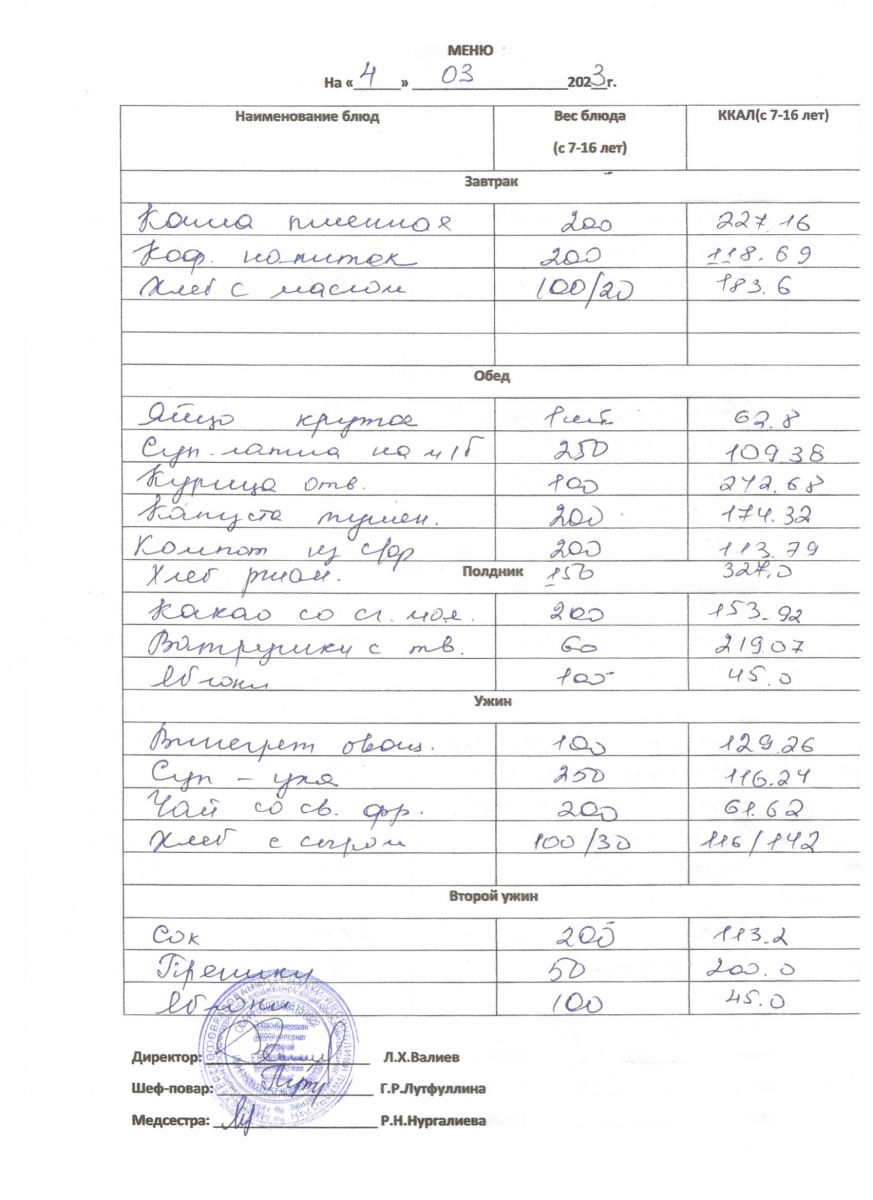 МЕНЮ
На « 4 » 03 2023 г.
Наименование блюд Вес блюда (с 7-16 лет) ККАЛ(с 7-16 лет)
Завтрак
Каша пшенная 200 227.16
Коф. напиток 200 118.69
Хлеб с маслом 100/20 183.6
Обед
Яйцо крутое 1шт. 62.8
Суп-лапша на м/б 250 109.38
Курица отв. 100 272.68
Капуста тушен. 200 174.32
Компот из с/фр 200 113.79
Хлеб ржан. 150 327.0
Полдник
Какао со сг. мол. 200 153.92
Ватрушки с тв. 60 219.07
Яблоки 100 45.0
Ужин
Винегрет овощ. 100 129.26
Суп - уха 250 116.24
Чай со св. фр. 200 61.62
Хлеб с сыром 100/30 116/142
Второй ужин
Сок 200 113.2
Пряники 50 200.0
Яблоки 100 45.0
Директор: Л.Х.Валиев
Шеф-повар: Г.Р.Лутфуллина
Медсестра: Р.Н.Нургалиева